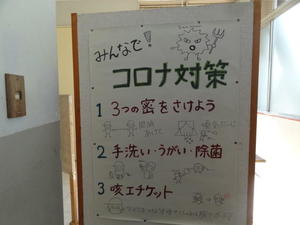 みんなで!
コロナ対策
1 3つの密をさけよう
2 手洗い・うがい・除菌
3 咳エチケット